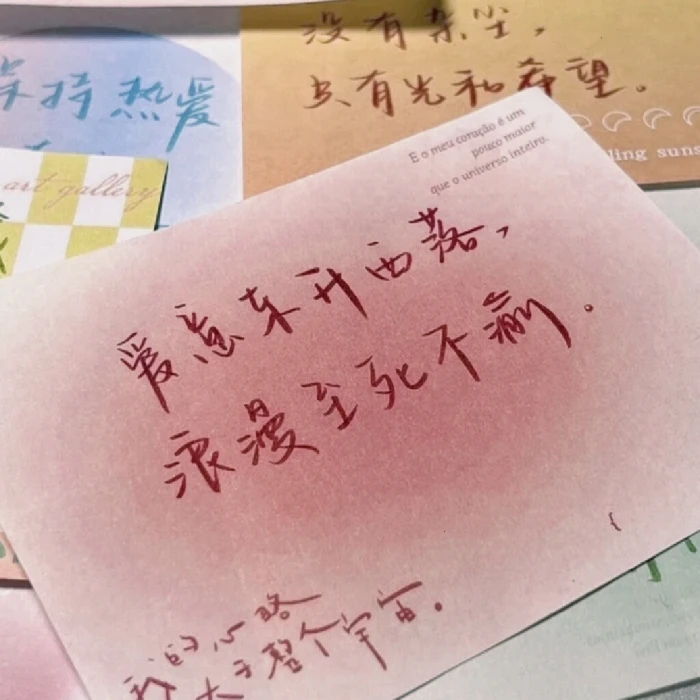 没有杂尘，
只有光和希望。
保持热爱
art gallery
ling suns
E o meu coração é um
pouco maior
que o universo inteiro.
爱意东升西落，
浪漫至死不渝。
我的心略
大于整个宇宙。